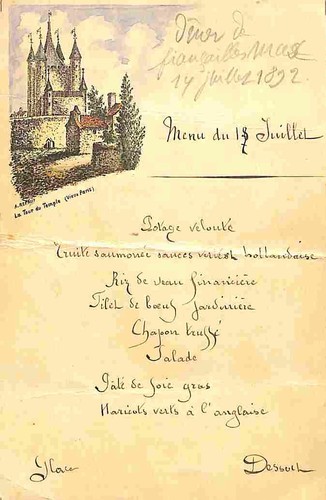 Dîner de
fiançailles
14 juillet 1892
Menu du 14 Juillet
La Tour du Temple (Vieux Paris)
Potage velouté
Truite saumonée sauces verte et hollandaise
Riz de veau financière
Filet de bœuf jardinière
Chapon truffé
Salade
Pâté de foie gras
Haricots verts à l'anglaise
Glace
Dessert